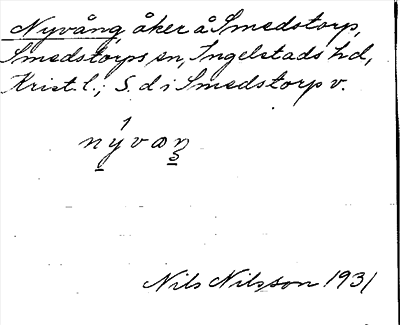 Nyvång, åker å Smedstorp,
Smedstorps sn, Ingelstads hd,
Krist. l.; S. d i Smedstorp v.
nývaŋ
Nils Nilsson 1931